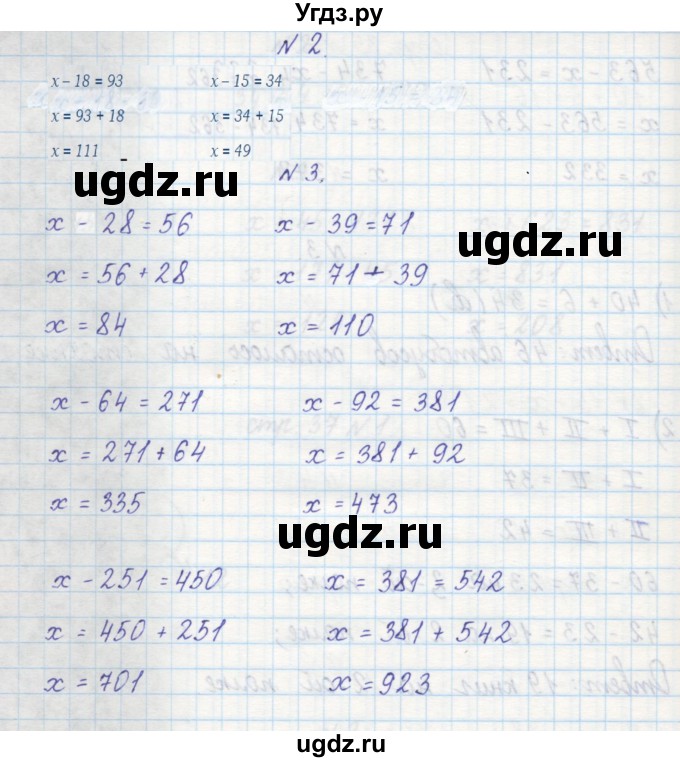 Угдз.ру
N 2.
x – 18 = 93    x – 15 = 34
x = 93 + 18    x = 34 + 15
x = 111    x = 49
ugdz.ru
N 3.
x - 28 = 56    x - 39 = 71
ugdz.ru
x = 56 + 28    x = 71 + 39
x = 84    x = 110
x - 64 = 271    x - 92 = 381
x = 271 + 64    x = 381 + 92
x = 335    x = 473
ugdz.ru
x - 251 = 450    x = 381 = 542
x = 450 + 251    x = 381 + 542
x = 701    x = 923
ugdz.ru